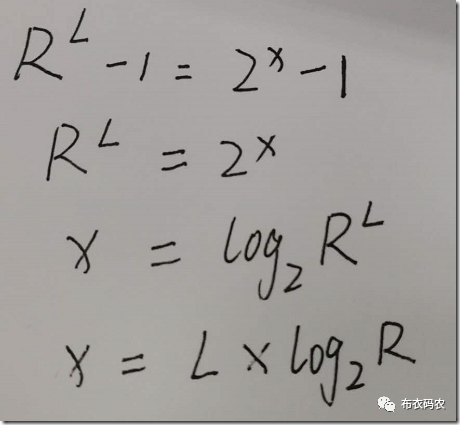 R^L - 1 = 2^x - 1
R^L = 2^x
x = log₂ R^L
x = L × log₂ R
布衣码农